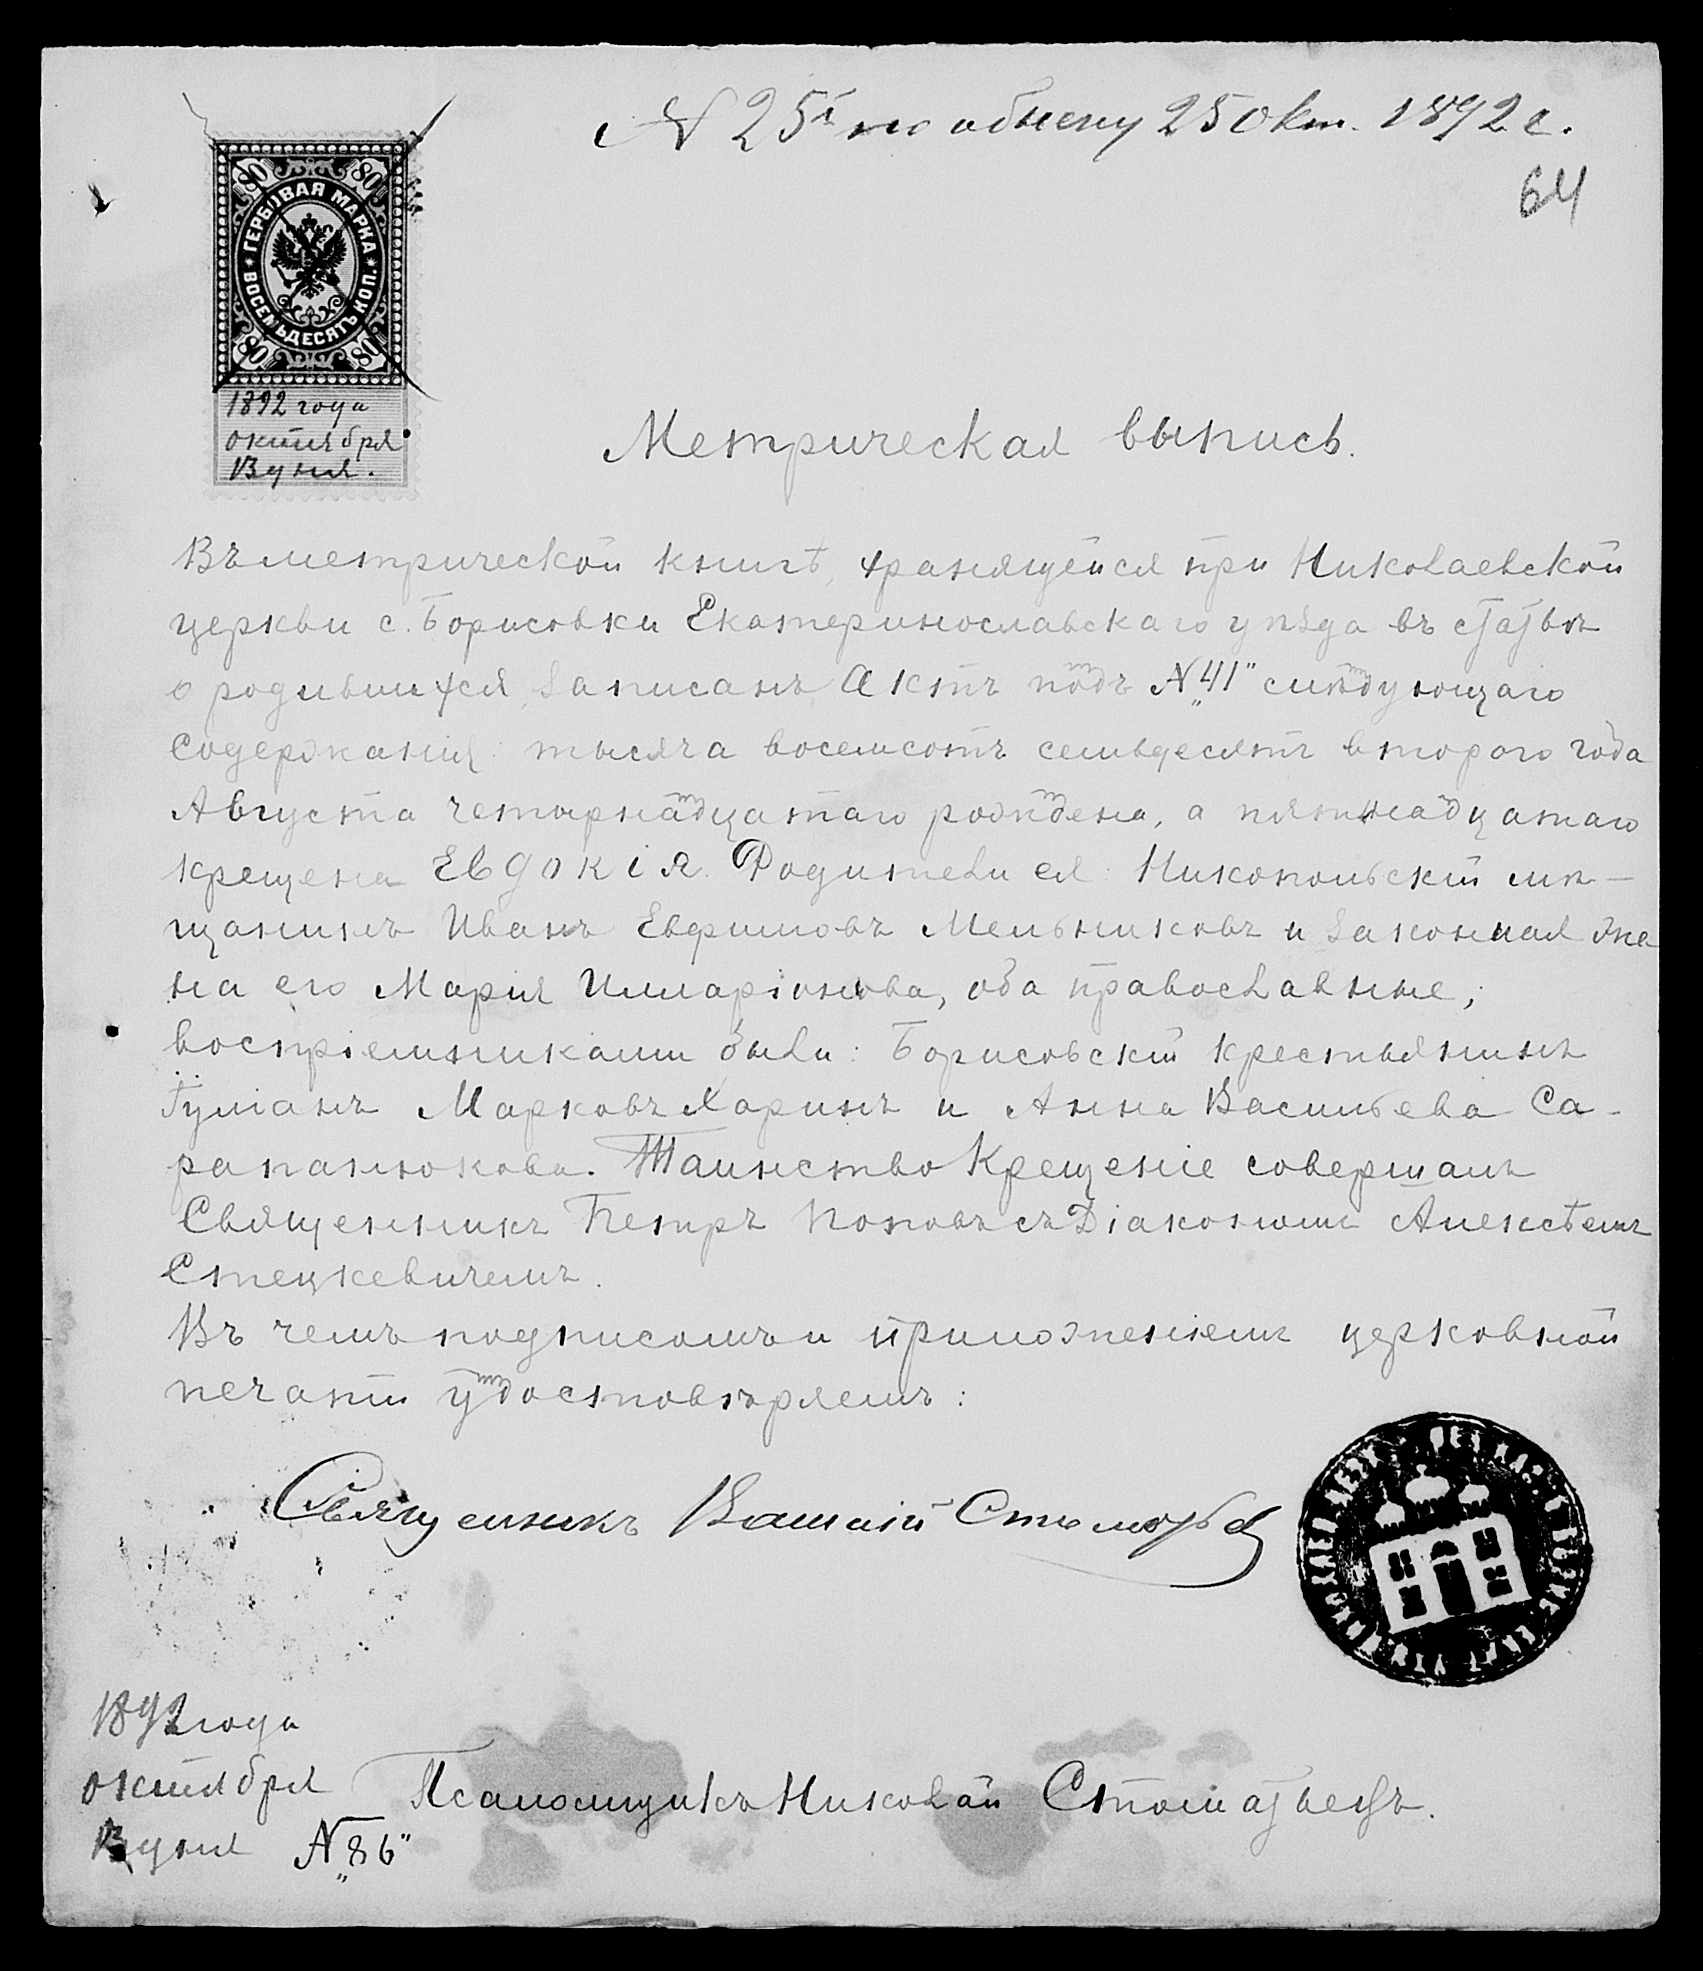 25 Окт. 1892 г.
64
80 80
ГЕРБОВАЯ МАРКА
ВОСЕМЬДЕСЯТЪ КОП.
80 80
1892 года
октября
дня.
Метрическая выпись.
Въ метрической книгѣ, хранящейся при Николаевской
церкви с. Борисовки Екатеринославскаго уѣзда въ статьѣ
о родившихся, записанъ Актъ подъ № „41“ слѣдующаго
содержанія: тысяча восемсотъ семьдесятъ второго года
Августа четырнадцатаго рождена, а пятнадцатаго
крещена Евдокія. Родители ея: Никопольскій мѣ-
щанинъ Иванъ Евфимовъ Мельниковъ и законная же
на его Марія Илларіонова, оба православные;
воспріемниками были: Борисовскій крестьянинъ
Марковъ Харинъ и Анна Васильева Са-
рапанюкова. Таинство Крещеніе совершалъ
Священникъ Петръ Поповъ съ Діакономъ Алексѣемъ
Стецкевичемъ.
Въ чемъ подписомъ и приложеніемъ церковной
печати удостовѣряемъ:
Священникъ
1892 года
октября Псаломщикъ Николай
дня № „86“